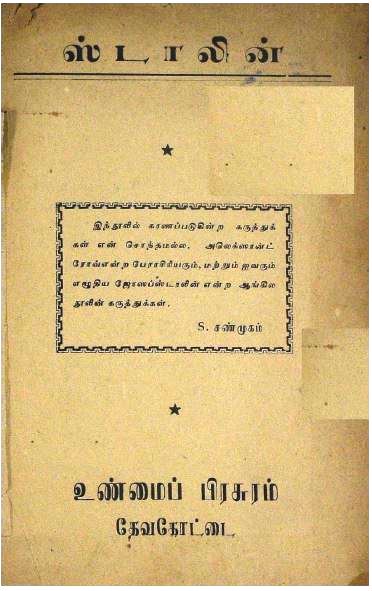 ஸ்டாலின்
இந்நூலில் காணப்படுகின்ற கருத்துக்
கள் என் சொந்தமல்ல. அலெக்ஸாண்ட்
ரோவ்என்ற பேராசிரியரும், மற்றும் ஐவரும்
எழுதிய ஜோஸப்ஸ்டாலின் என்ற ஆங்கில
நூலின் கருத்துக்கள்.
S. சண்முகம்
உண்மைப் பிரசுரம்
தேவகோட்டை